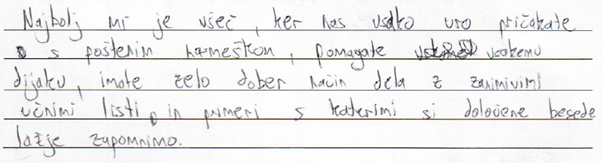 Najbolj mi je všeč, ker nas vsako uro pričakate
s poštenim nasmeškom, pomagate vsakemu
dijaku, imate zelo dober način dela z zanimivimi
učnimi listi, in primeri s katerimi si določene besede
lažje zapomnimo.